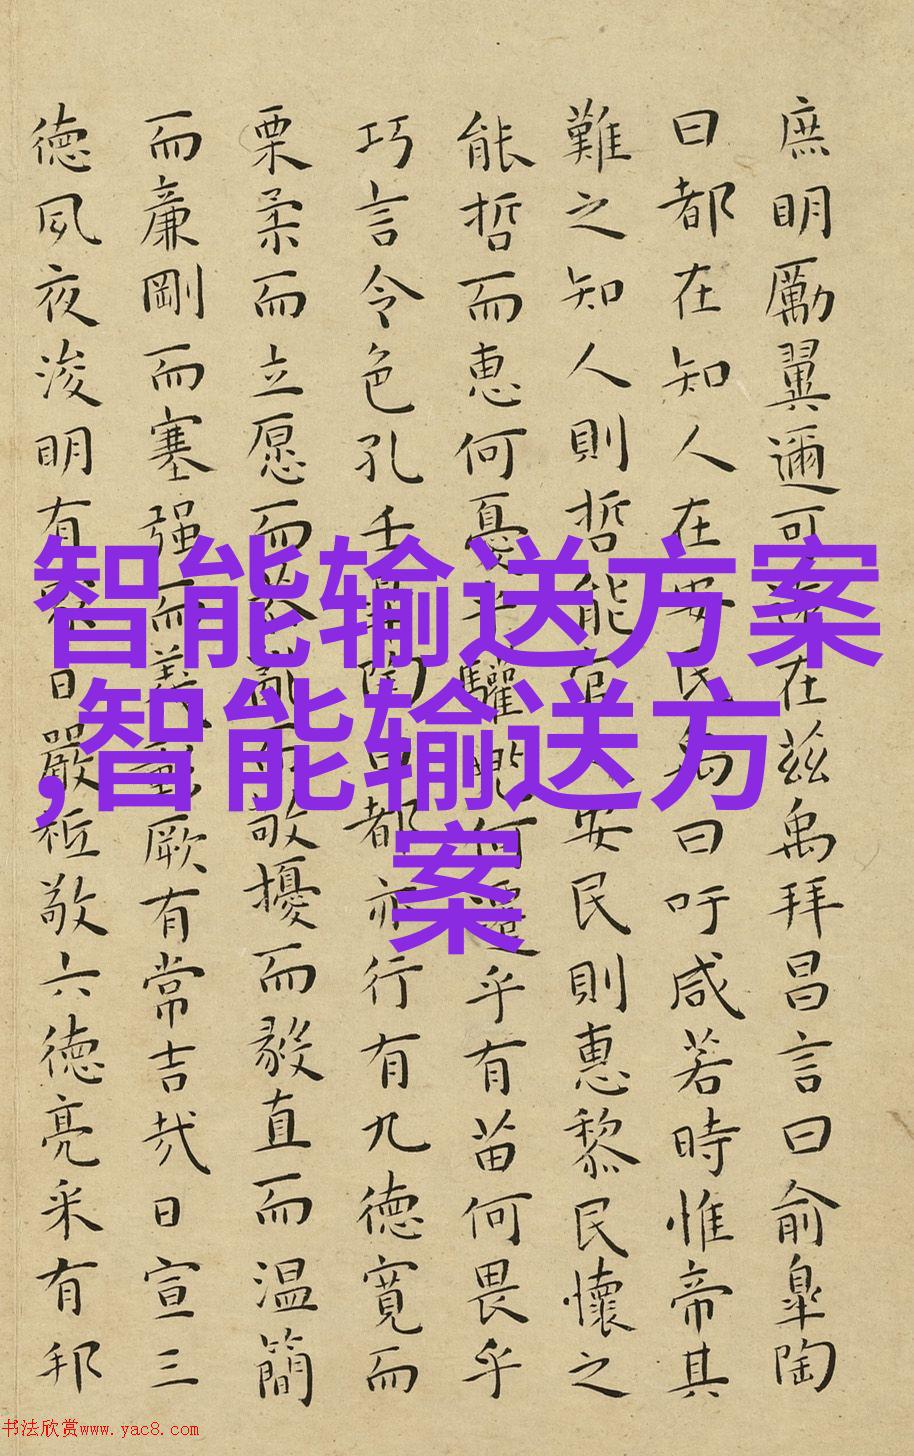 庶明厲翼邇可在茲禹拜昌言曰俞皐陶
曰都在知人在安民禹曰吁咸若時惟帝其
難之知人則哲能官安民則惠黎民懷之
能哲而惠何憂乎驩兜何遷乎有苗何畏乎
巧言令色孔壬陶曰都亦行有九德寬而
栗柔而立愿而恭亂而敬擾而毅直而温簡
而廉剛而塞强而義厥有常吉哉日宣三
德夙夜浚明有家日嚴祗敬六德亮采有邦
智能输送方案
,智能输送方
案
书法欣赏www.yac8.com